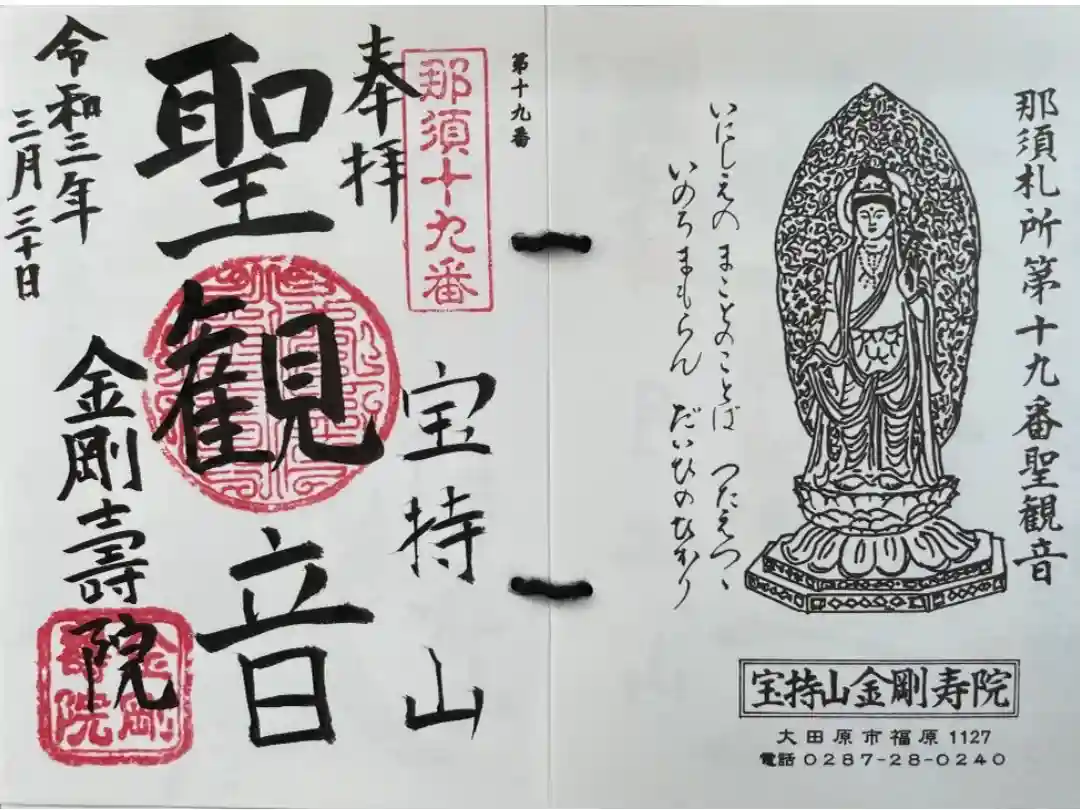 那須札所第十九番聖観音
いにしえの まことのことば つたえつゝ
いのちまもらん だいひのひかり
宝持山金剛寿院
大田原市福原1127
電話0287-28-0240
第十九番
那須十九番
奉拝
宝持山
聖観音
令和三年
三月三十日
金剛壽院
金剛
寿院